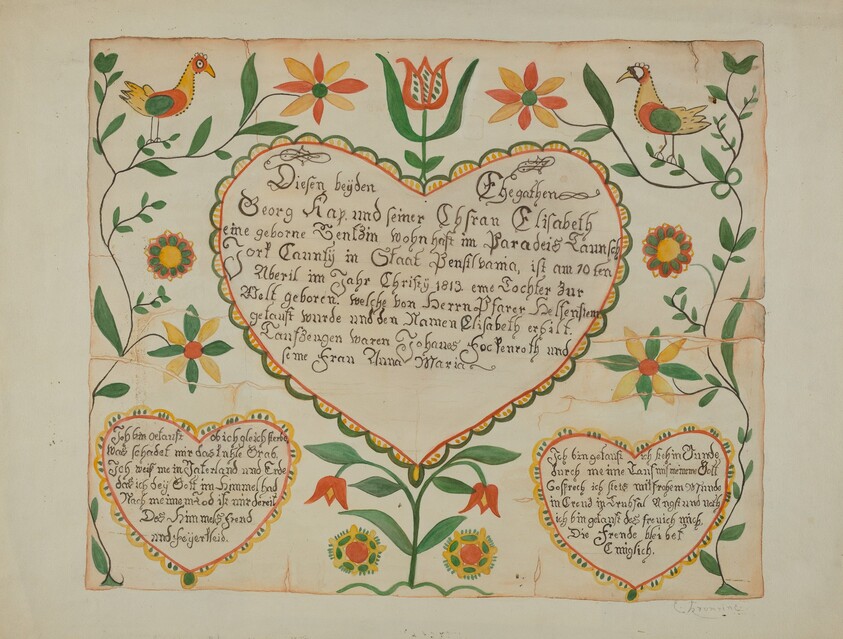 Diesen beÿden Ehegathen
Georg Kap. und seiner Ehfrau Elisabeth
eine geborne wohnhaft im Paradeis Taunsch
York Caunty in Staat Pensilvania, ist am 10 ten
Aberil im Jahr Christÿ 1813 eine Tochter zur
Welt geboren welche von Herrn Pfarer
getauft wurde und den Namen Elisabeth erhilt.
Taufzeugen waren Johanes Fockenroth und
seine Frau Anna Maria
Ich bin getauft ob ich gleich sterbe
was schadet mir das kühle Grab,
Ich weiß mein Vaterland und Erbe
das ich beÿ Gott im Himmel hab
Nach meinem Tod ist mir bereit
Des Himmels Freud
und Feÿerkleid.
Ich bin getauft ich steh im Bunde
durch meine Tauf mit meinem Gott
So sprech ich stets mit frohem Munde
in Creud in Trubsal Angst und Noth
ich bin getauft des freu ich mich.
Die Freude bleibet
Ewiglich.